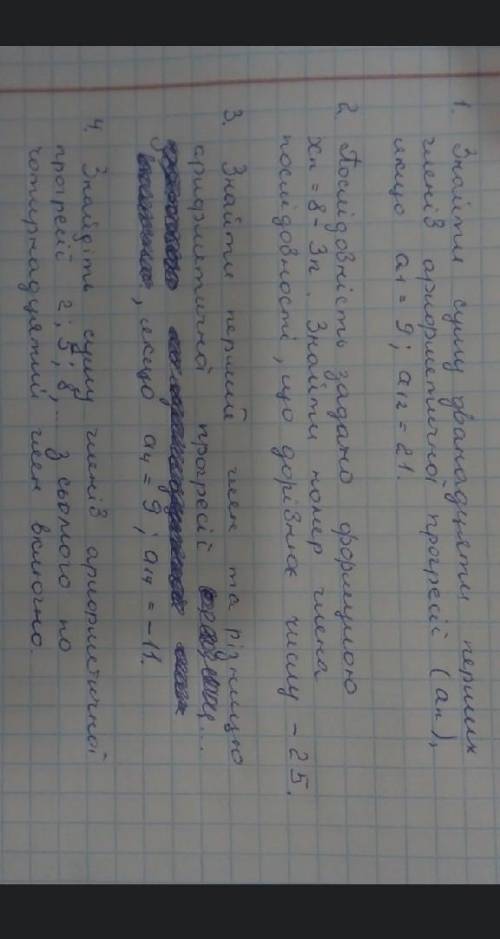 1. Знайти суму дванадцяти перших
членів арифметичної прогресії (an),
якщо a1 = 9; a12 = 21.
2. Послідовність задано формулою
xn = 8 - 3n. Знайти номер члена
послідовності, що дорівнює числу -25.
3. Знайти перший член та різницю
арифметичної прогресії ...
, якщо a4 = 9; a14 = -11.
4. Знайдіть суму членів арифметичної
прогресії 2; 5; 8;... з сьомого по
чотирнадцятий член включно